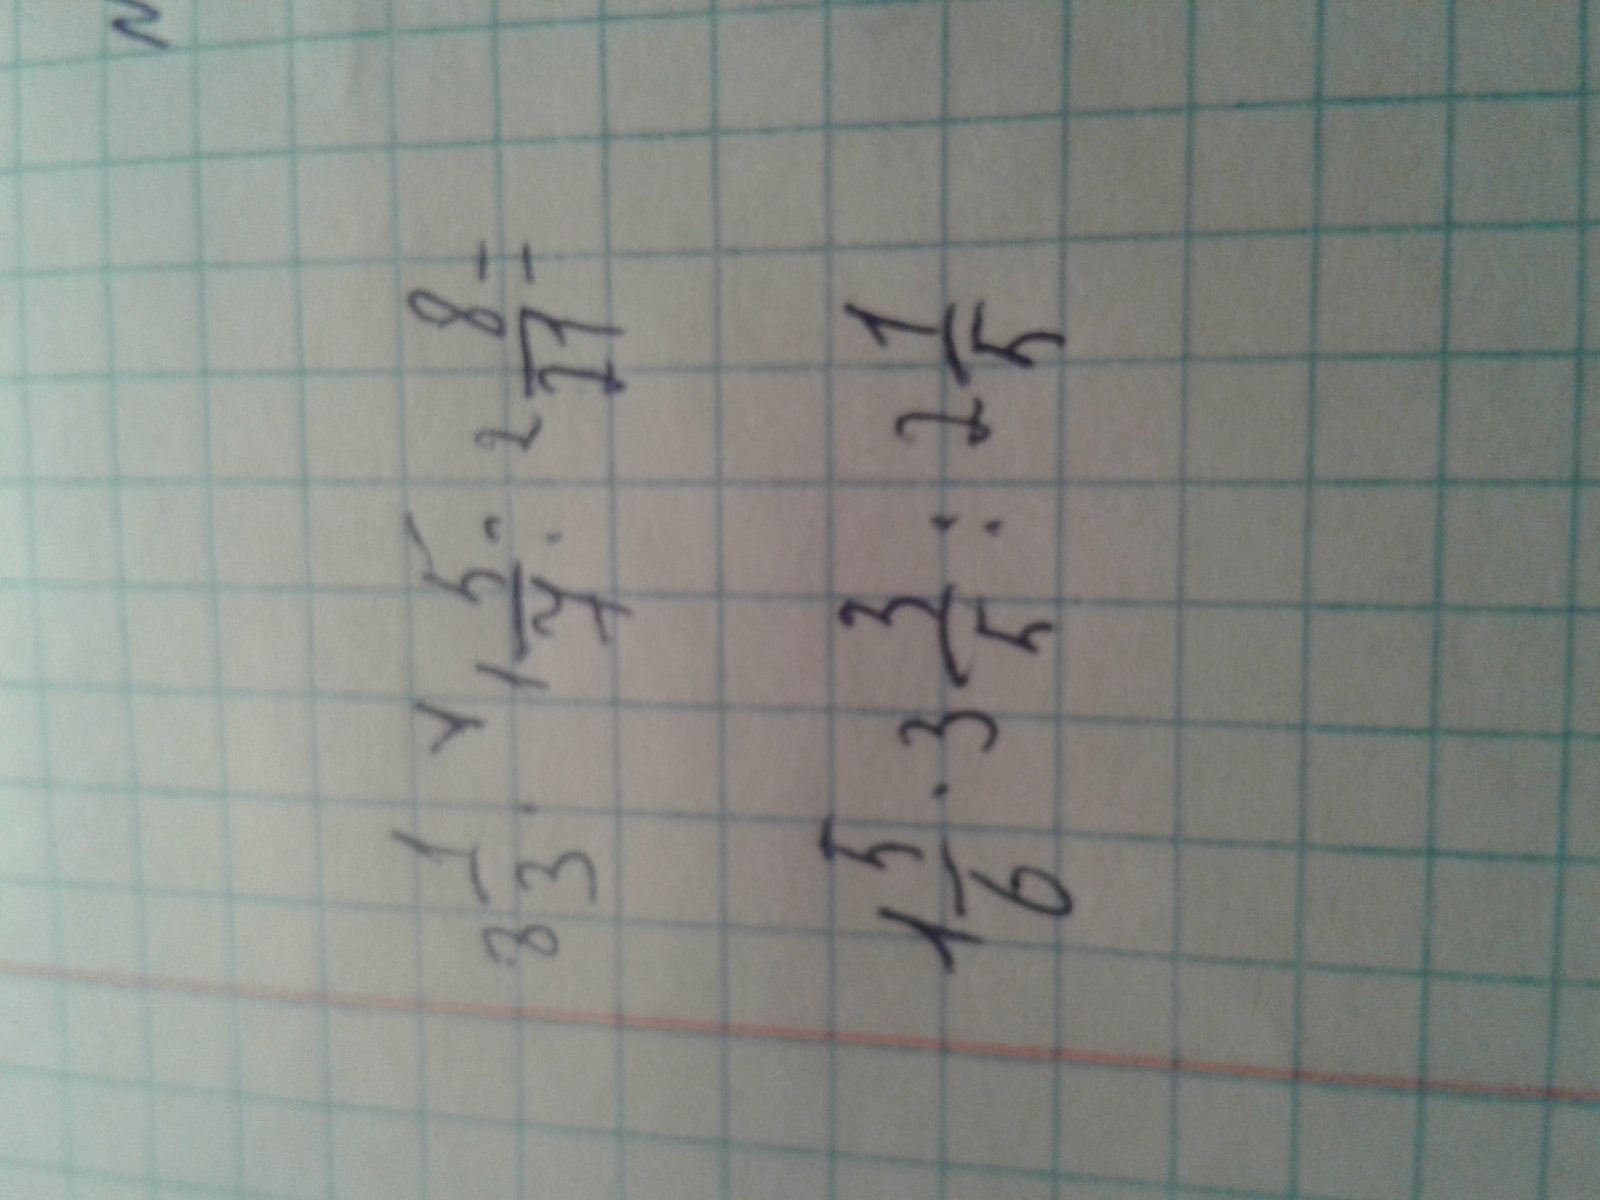 8 1/3 · 1 5/7 : 2 8/21 =
1 5/6 · 3 3/5 : 2 1/5